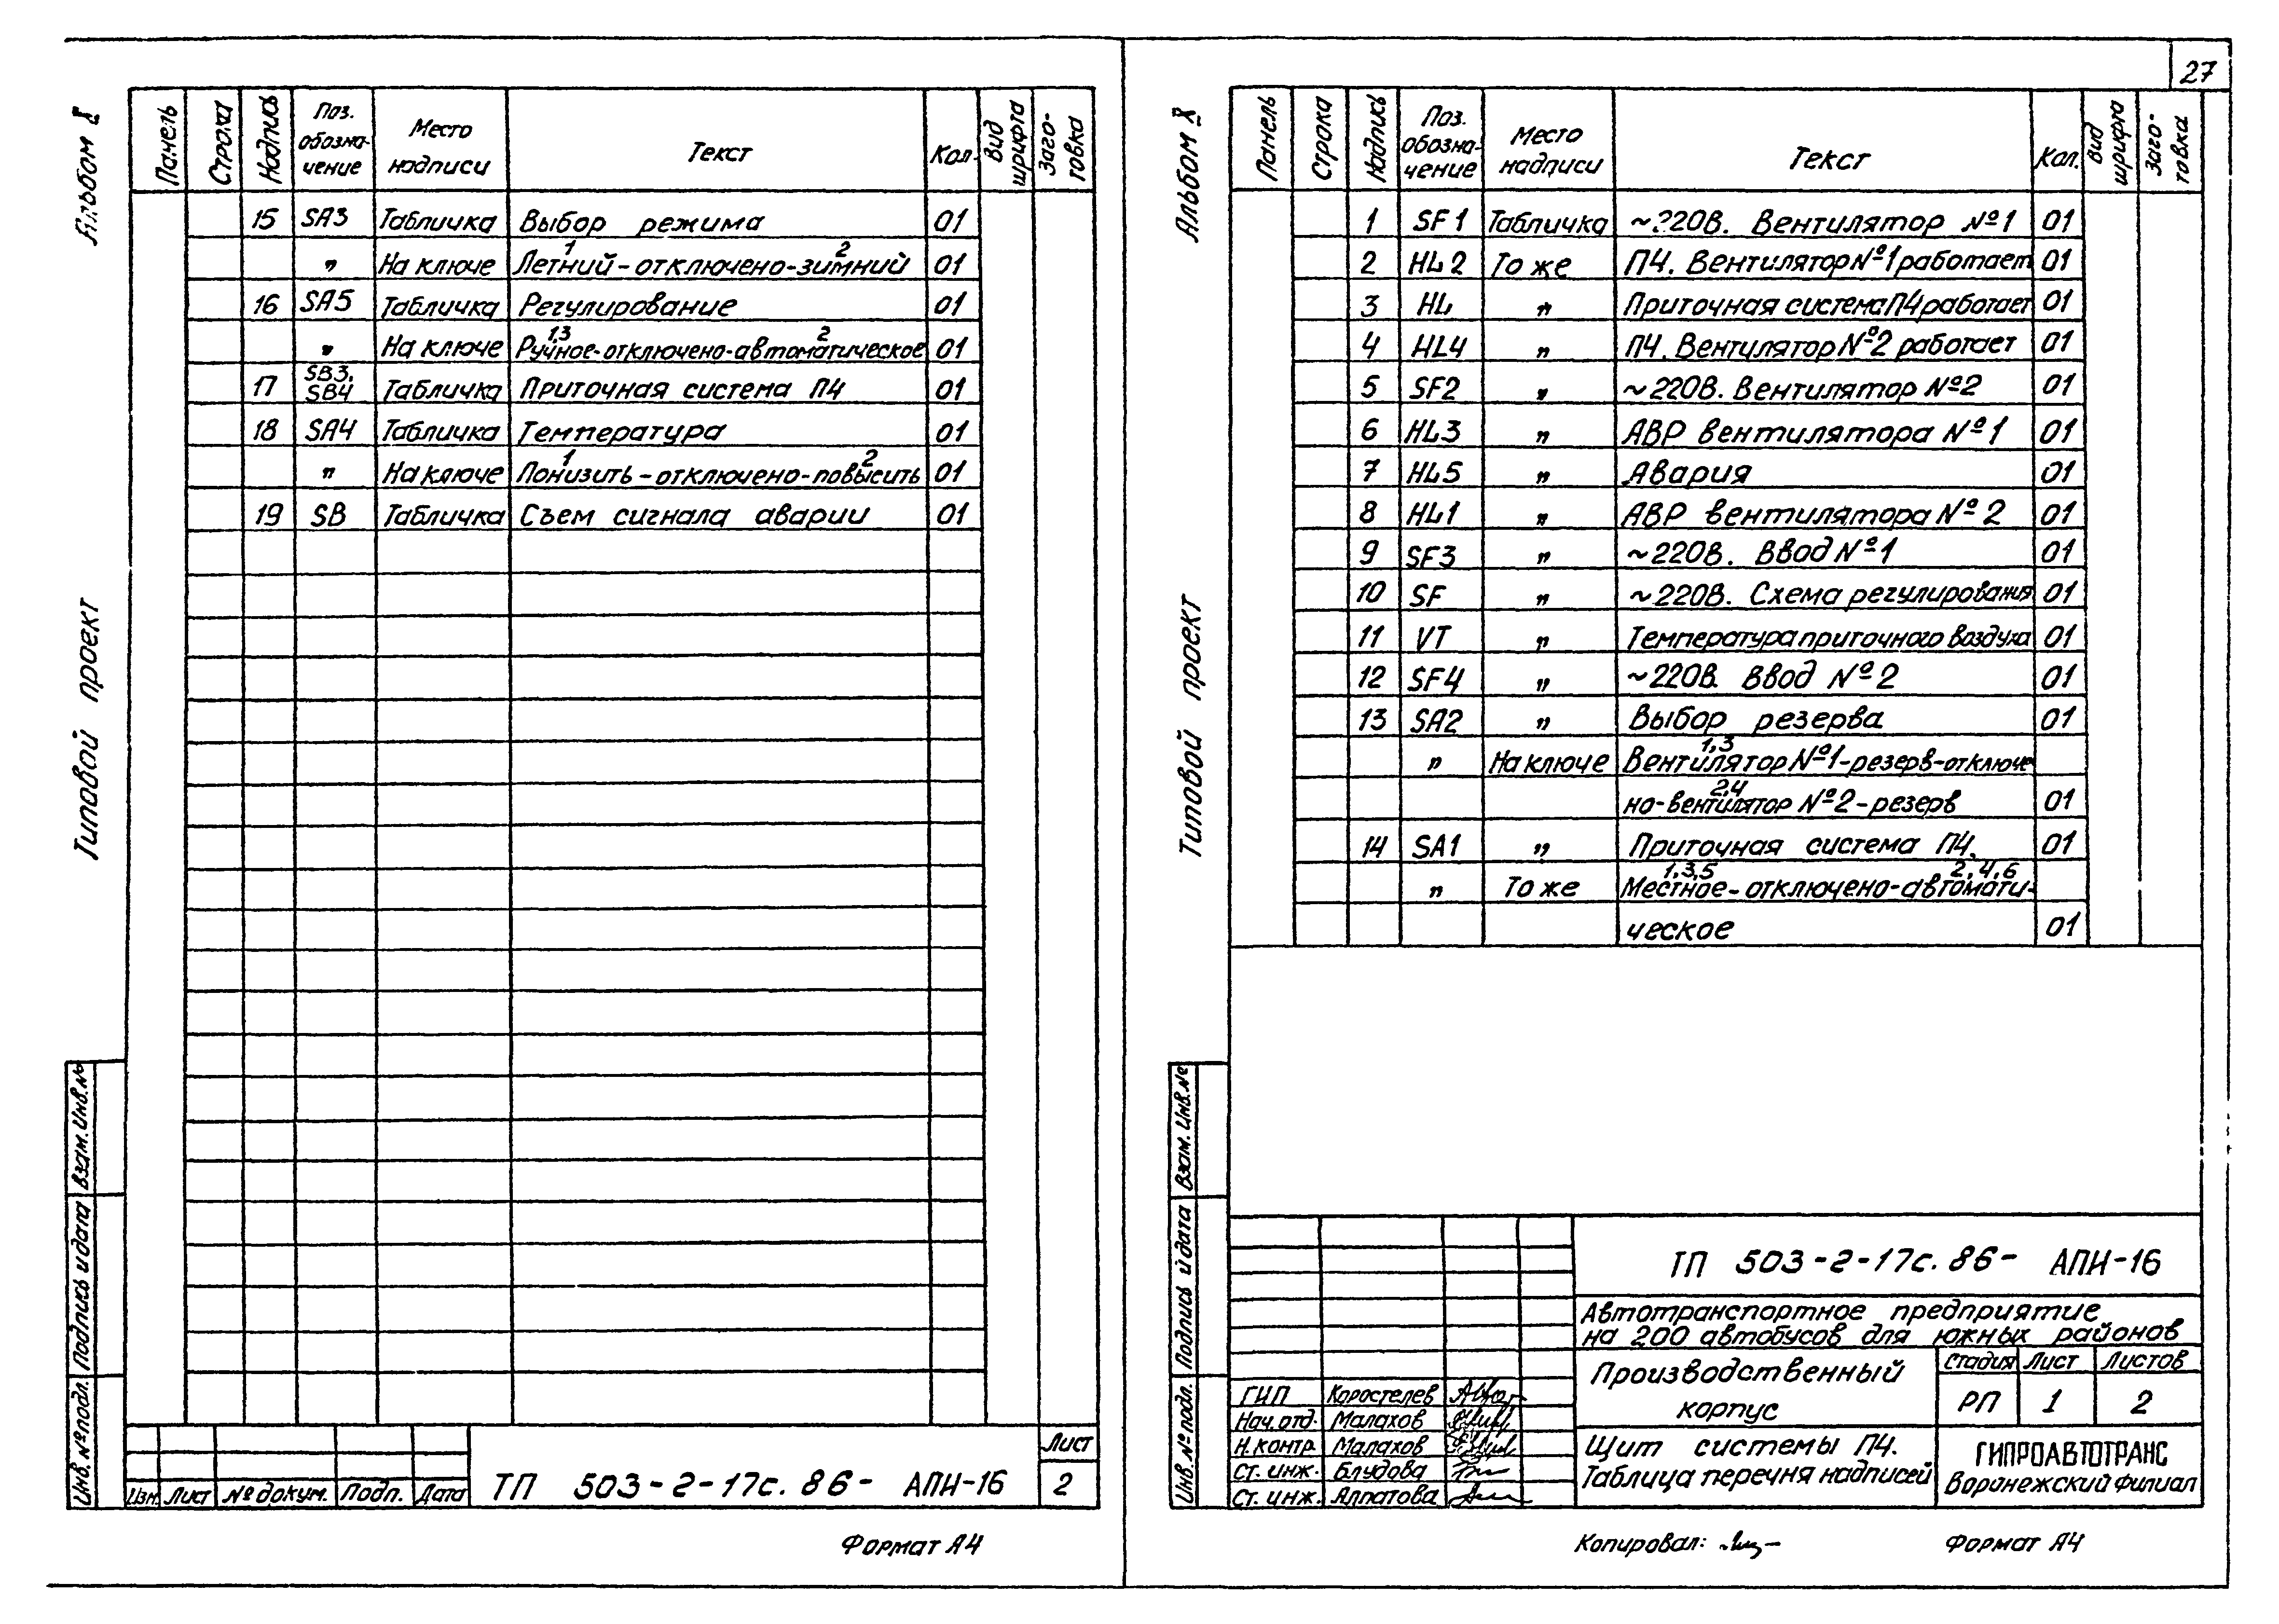 27
Альбом X
Типовой проект
Панель Строка Надпись Поз. обозна- чение Место надписи Текст Кол. Вид шрифта Заго- товка
15 SA3 Табличка Выбор режима 01
" На ключе Летний 1 - отключено - зимний 2 01
16 SA5 Табличка Регулирование 01
" На ключе Ручное 1,3 - отключено - автоматическое 2 01
17 SB3, SB4 Табличка Приточная система П4 01
18 SA4 Табличка Температура 01
" На ключе Понизить 1 - отключено - повысить 2 01
19 SB Табличка Съем сигнала аварии 01
Взам. Инв. №
Подпись и дата
Инв. № подл.
Изм. Лист № докум. Подп. Дата
ТП 503-2-17с. 86- АПН-16
Лист
2
Формат А4
Альбом X
Типовой проект
Панель Строка Надпись Поз. обозна- чение Место надписи Текст Кол. Вид шрифта Заго- товка
1 SF1 Табличка ~220В. Вентилятор №1 01
2 HL2 То же П4. Вентилятор №1 работает 01
3 HL " Приточная система П4 работает 01
4 HL4 " П4. Вентилятор №2 работает 01
5 SF2 " ~220В. Вентилятор №2 01
6 HL3 " АВР вентилятора №1 01
7 HL5 " Авария 01
8 HL1 " АВР вентилятора №2 01
9 SF3 " ~220В. Ввод №1 01
10 SF " ~220В. Схема регулирования 01
11 VT " Температура приточного воздуха 01
12 SF4 " ~220В. Ввод №2 01
13 SA2 " Выбор резерва 01
" На ключе Вентилятор 1,3 №1-резерв-отключе
но-вентилятор 2,4 №2-резерв 01
14 SA1 " Приточная система П4. 01
" То же Местное 1,3,5 - отключено - автомати- 2,4,6
ческое 01
Взам. Инв. №
Подпись и дата
Инв. № подл.
ТП 503-2-17с. 86- АПН-16
Автотранспортное предприятие
на 200 автобусов для южных районов
Производственный
корпус
Стадия Лист Листов
РП 1 2
ГИП Коростелев
Нач. отд. Малахов
Н. контр. Малахов
Ст. инж. Блудова
Ст. инж. Алпатова
Щит системы П4.
Таблица перечня надписей
ГИПРОАВТОТРАНС
Воронежский филиал
Копировал:
Формат А4